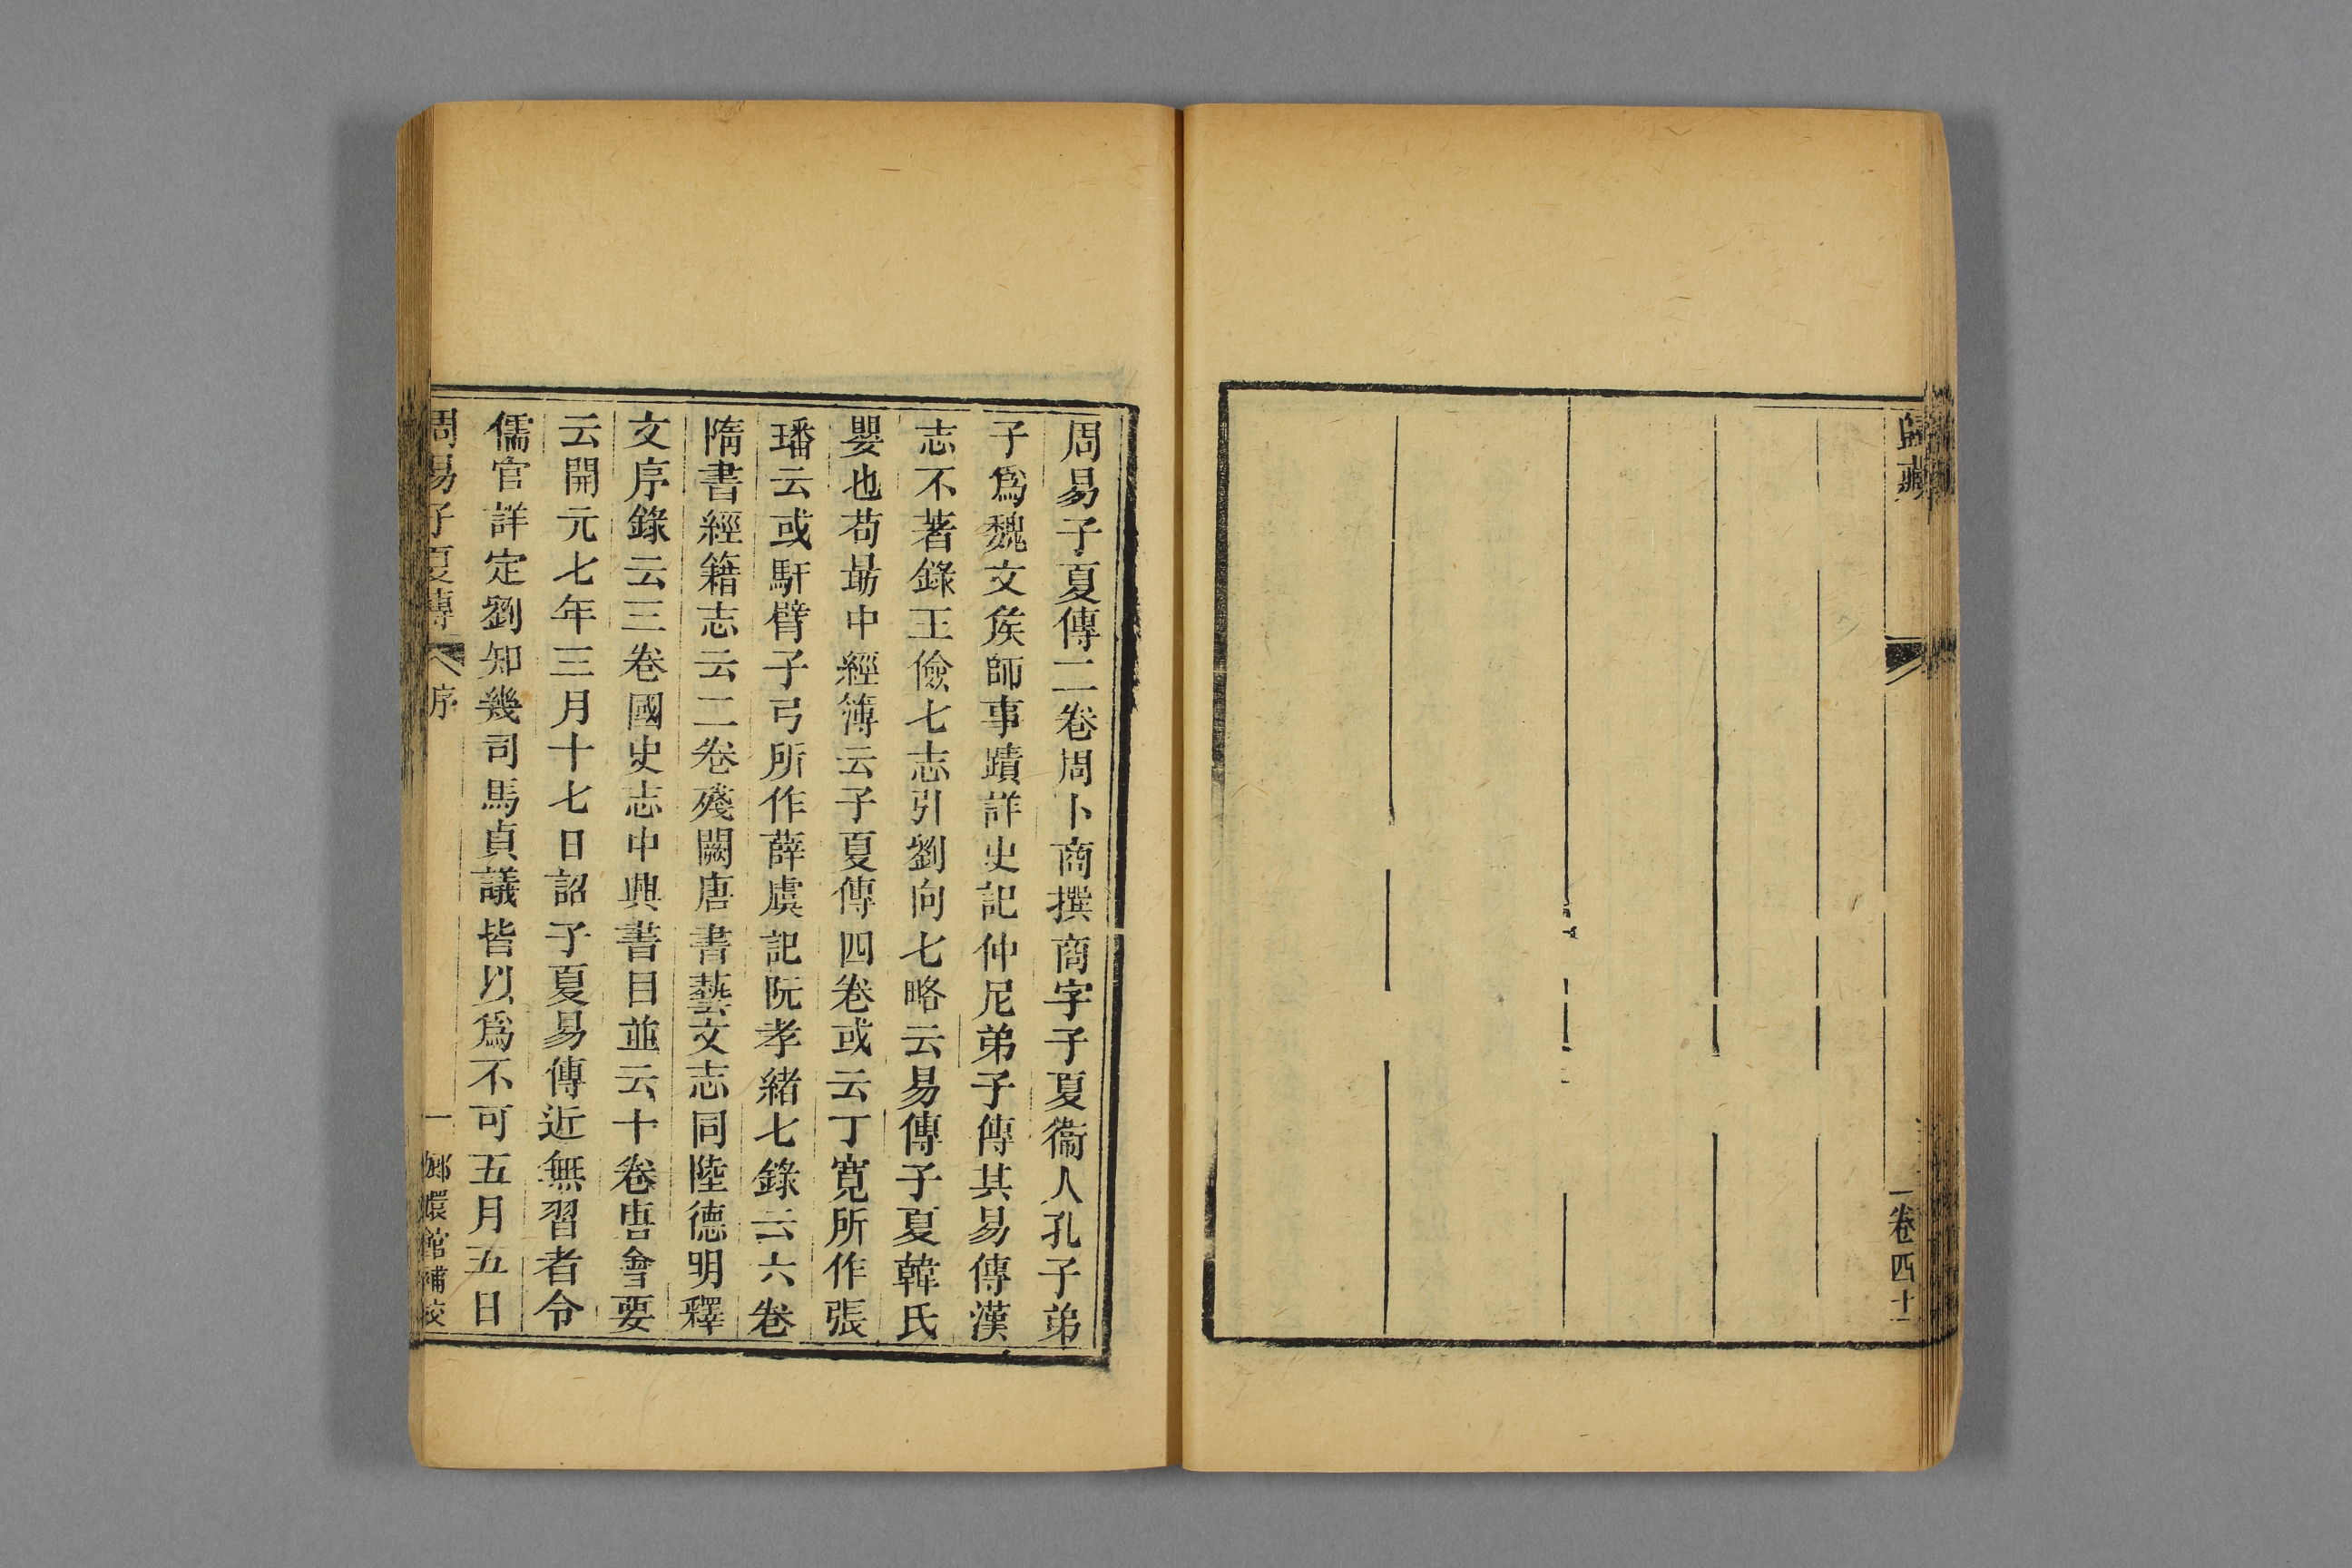 歸藏
一卷四十
周易子夏傳二卷周卜商撰商字子夏衞人孔子弟
子爲魏文矦師事蹟詳史記仲尼弟子傳其易傳漢
志不著錄王儉七志引劉向七略云易傳子夏韓氏
嬰也荀勗中經簿云子夏傳四卷或云丁寬所作張
璠云或馯臂子弓所作薛虞記阮孝緒七錄云六卷
隋書經籍志云二卷殘闕唐書藝文志同陸德明釋
文序錄云三卷國史志中興書目並云十卷唐會要
云開元七年三月十七日詔子夏易傳近無習者令
儒官詳定劉知幾司馬貞議皆以爲不可五月五日
周易子夏傳 序 一 嫏嬛館補校